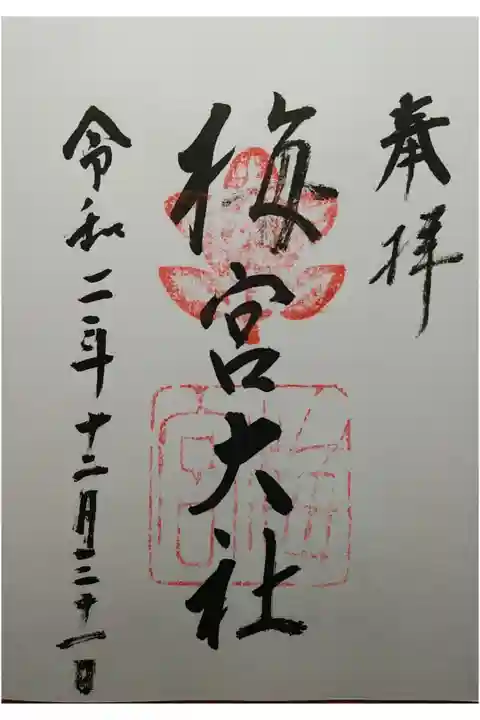 奉拝
梅宮大社
令和二年十二月二十一日